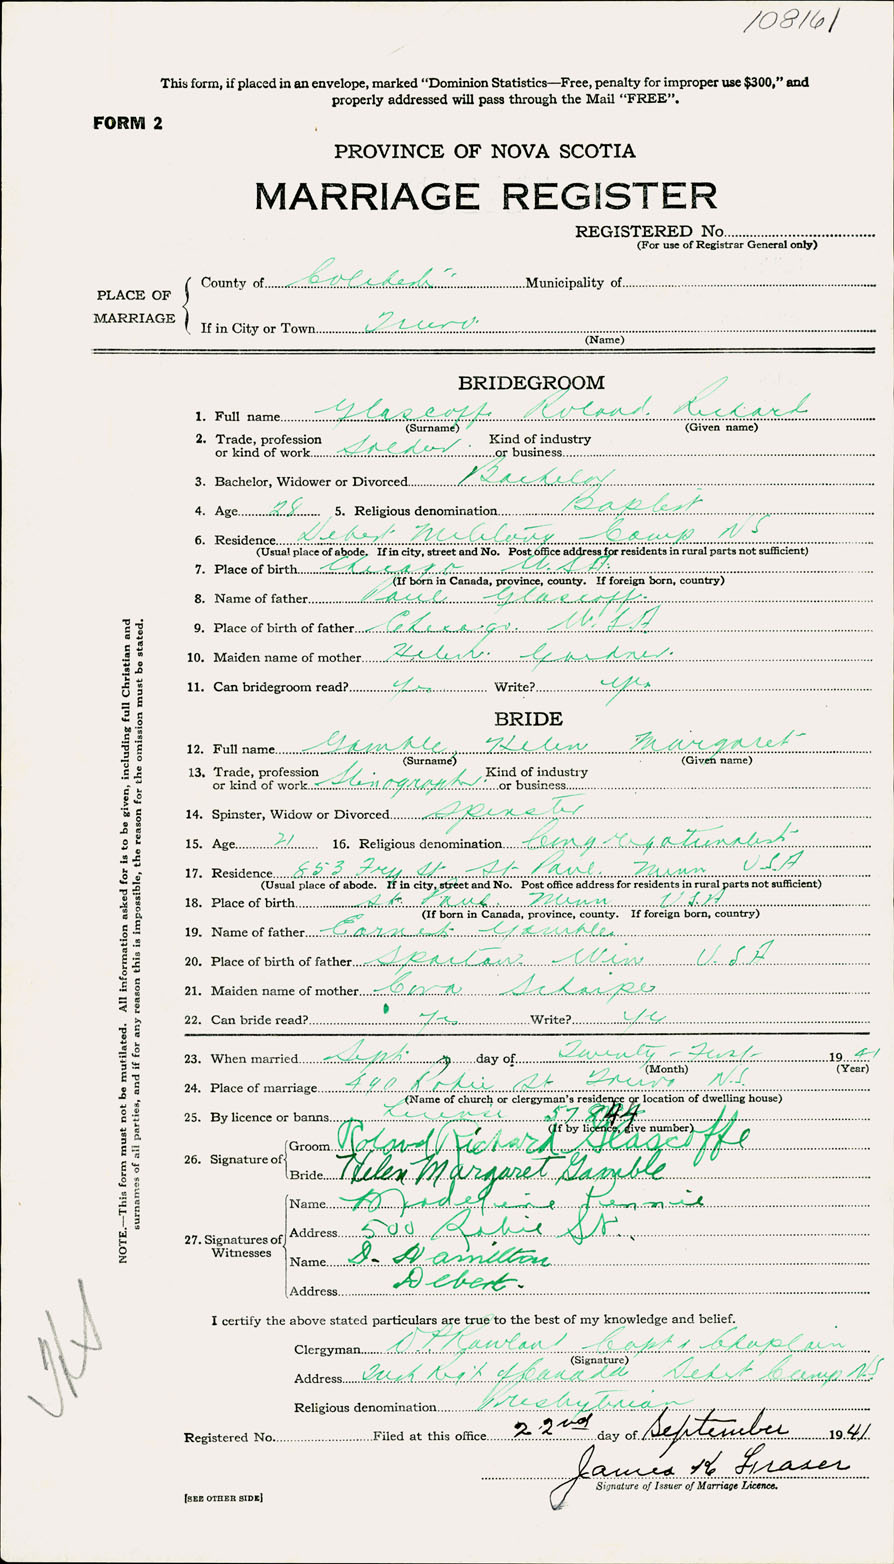 108161
This form, if placed in an envelope, marked “Dominion Statistics—Free, penalty for improper use $300,” and
properly addressed will pass through the Mail “FREE”.
FORM 2
PROVINCE OF NOVA SCOTIA
MARRIAGE REGISTER
REGISTERED No.
(For use of Registrar General only)
PLACE OF MARRIAGE
County of Municipality of
If in City or Town Truro
(Name)
BRIDEGROOM
1. Full name Glascoff Roland Richard
(Surname) (Given name)
2. Trade, profession or kind of work Soldier Kind of industry or business
3. Bachelor, Widower or Divorced Bachelor
4. Age 28 5. Religious denomination Baptist
6. Residence Debert Military Camp NS
(Usual place of abode. If in city, street and No. Post office address for residents in rural parts not sufficient)
7. Place of birth Chicago U.S.A.
(If born in Canada, province, county. If foreign born, country)
8. Name of father Paul Glascoff
9. Place of birth of father Chicago U.S.A
10. Maiden name of mother Helen Gardner
11. Can bridegroom read? Yes Write? Yes
BRIDE
12. Full name Gamble, Helen Margaret
(Surname) (Given name)
13. Trade, profession or kind of work Stenographer Kind of industry or business
14. Spinster, Widow or Divorced Spinster
15. Age 21 16. Religious denomination Congregationalist
17. Residence 853 Fry St St Paul Minn USA
(Usual place of abode. If in city, street and No. Post office address for residents in rural parts not sufficient)
18. Place of birth St. Paul Minn U.S.A
(If born in Canada, province, county. If foreign born, country)
19. Name of father Earnest Gamble
20. Place of birth of father U.S.A
21. Maiden name of mother
22. Can bride read? Yes Write? Yes
23. When married Sept day of Twenty-First 1941
(Month) (Year)
24. Place of marriage 490 Robie St Truro N.S.
(Name of church or clergyman's residence or location of dwelling house)
25. By licence or banns License 57844
(If by licence, give number)
26. Signature of
Groom Roland Richard Glascoffe
Bride Helen Margaret Gamble
27. Signatures of Witnesses
Name Madeline Rennie
Address 500 Robie St.
Name D. Hamilton
Address Debert.
I certify the above stated particulars are true to the best of my knowledge and belief.
Clergyman Capt & Chaplain
(Signature)
Address of Canada Debert Camp NS
Religious denomination Presbyterian
Registered No. Filed at this office 22nd day of September 1941
James K Fraser
Signature of Issuer of Marriage Licence.
[SEE OTHER SIDE]
NOTE.—This form must not be mutilated. All information asked for is to be given, including full Christian and
surnames of all parties, and if for any reason this is impossible, the reason for the omission must be stated.